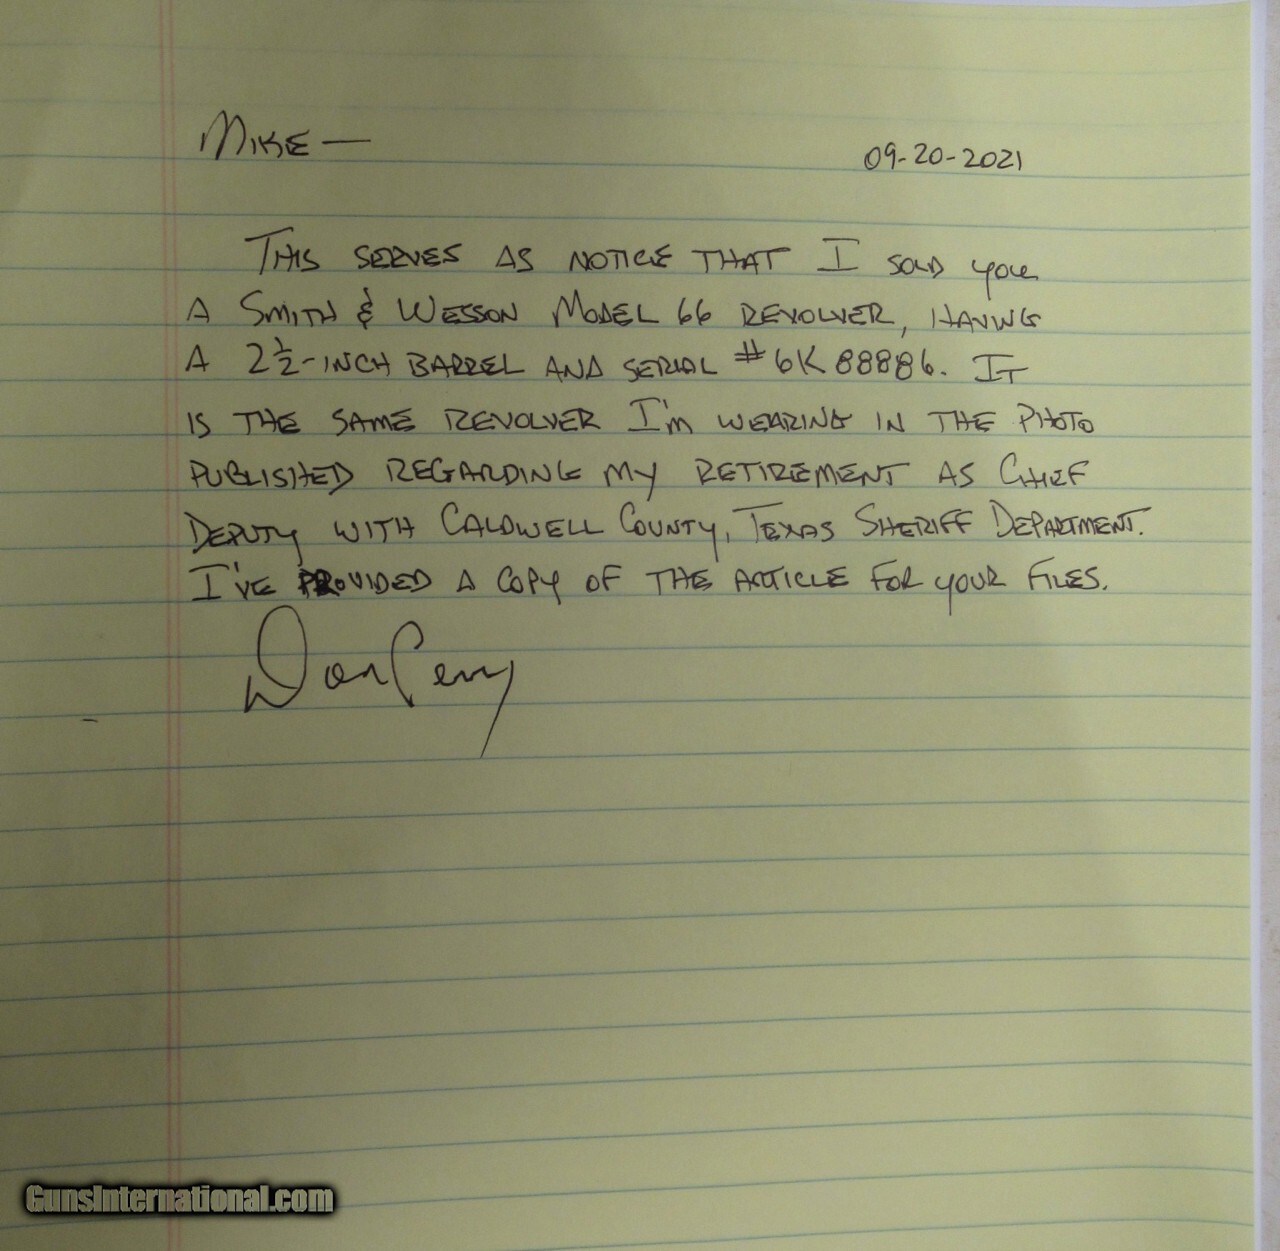 MIKE —
09-20-2021
THIS SERVES AS NOTICE THAT I SOLD YOU
A SMITH & WESSON MODEL 66 REVOLVER, HAVING
A 2½-INCH BARREL AND SERIAL #6K88886. IT
IS THE SAME REVOLVER I'M WEARING IN THE PHOTO
PUBLISHED REGARDING MY RETIREMENT AS CHIEF
DEPUTY WITH CALDWELL COUNTY, TEXAS SHERIFF DEPARTMENT.
I'VE PROVIDED A COPY OF THE ARTICLE FOR YOUR FILES.
Don Perry
GunsInternational.com